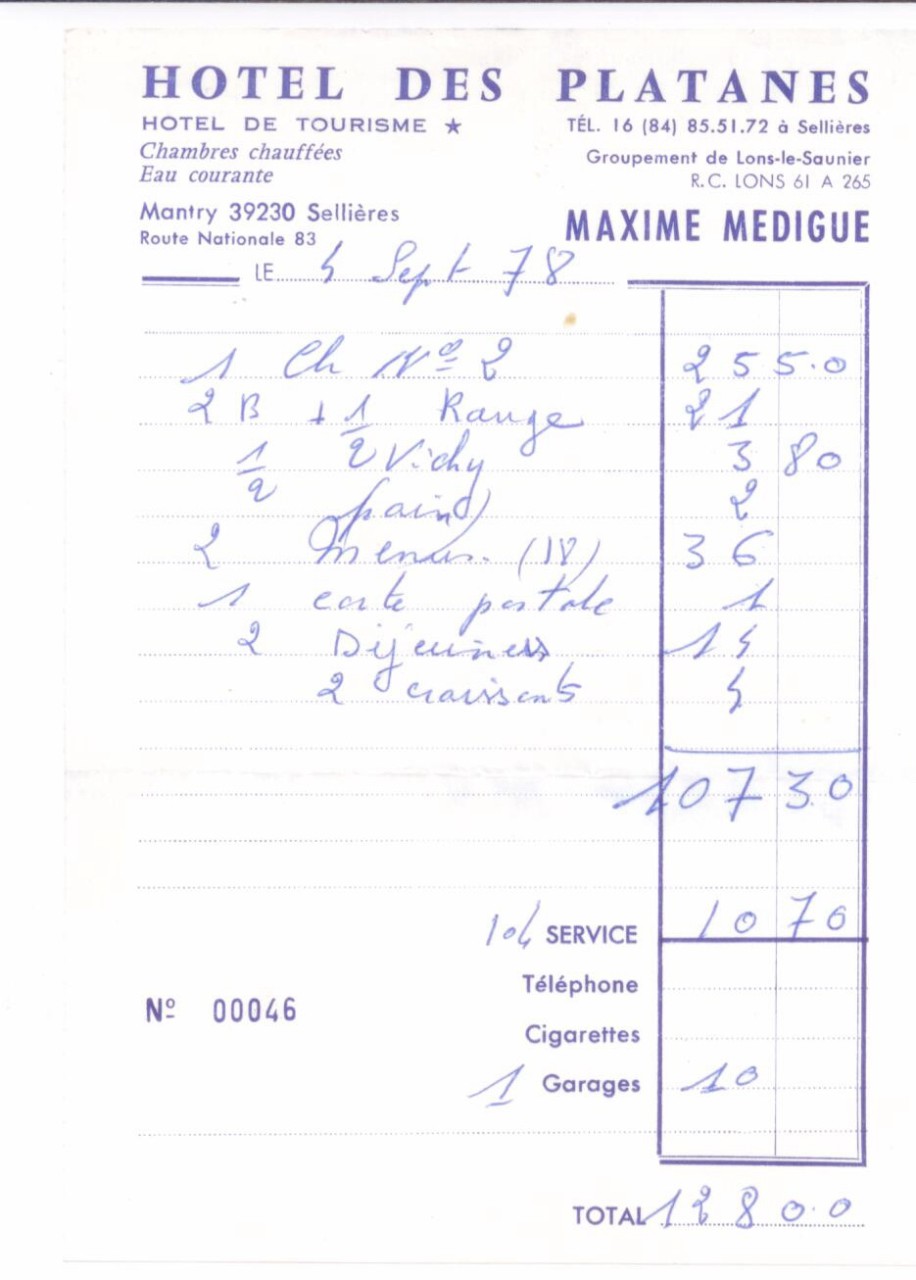 HOTEL DES PLATANES
HOTEL DE TOURISME ★
TÉL. 16 (84) 85.51.72 à Sellières
Chambres chauffées
Groupement de Lons-le-Saunier
Eau courante
R.C. LONS 61 A 265
Mantry 39230 Sellières
MAXIME MEDIGUE
Route Nationale 83
LE 4 Sept 78
1 Ch Nº 2 25 50
2 B + 1/2 Rouge 21
1/2 Vichy 3 80
pain 2
2 Menus (18) 36
1 carte postale 1
2 Déjeuners 14
2 croissants 4
107 30
10% SERVICE 10 70
Téléphone
Nº 00046
Cigarettes
1 Garages 10
TOTAL 128 00